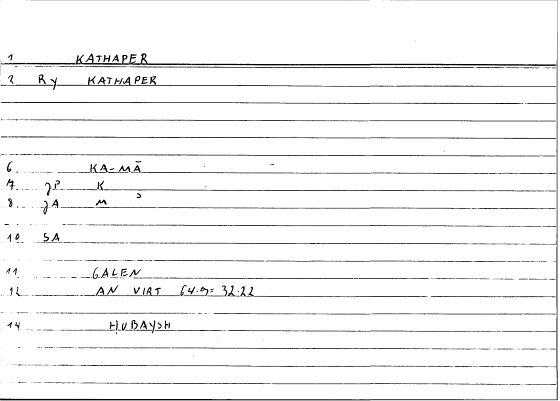 1 KATHAPER
2 Ry KATHAPER
6 KA-MĀ
7 JP K
8 JA M
10 SA
11 GALEN
12 AN VIRT 64.9= 32:22
14 HUBAYSH